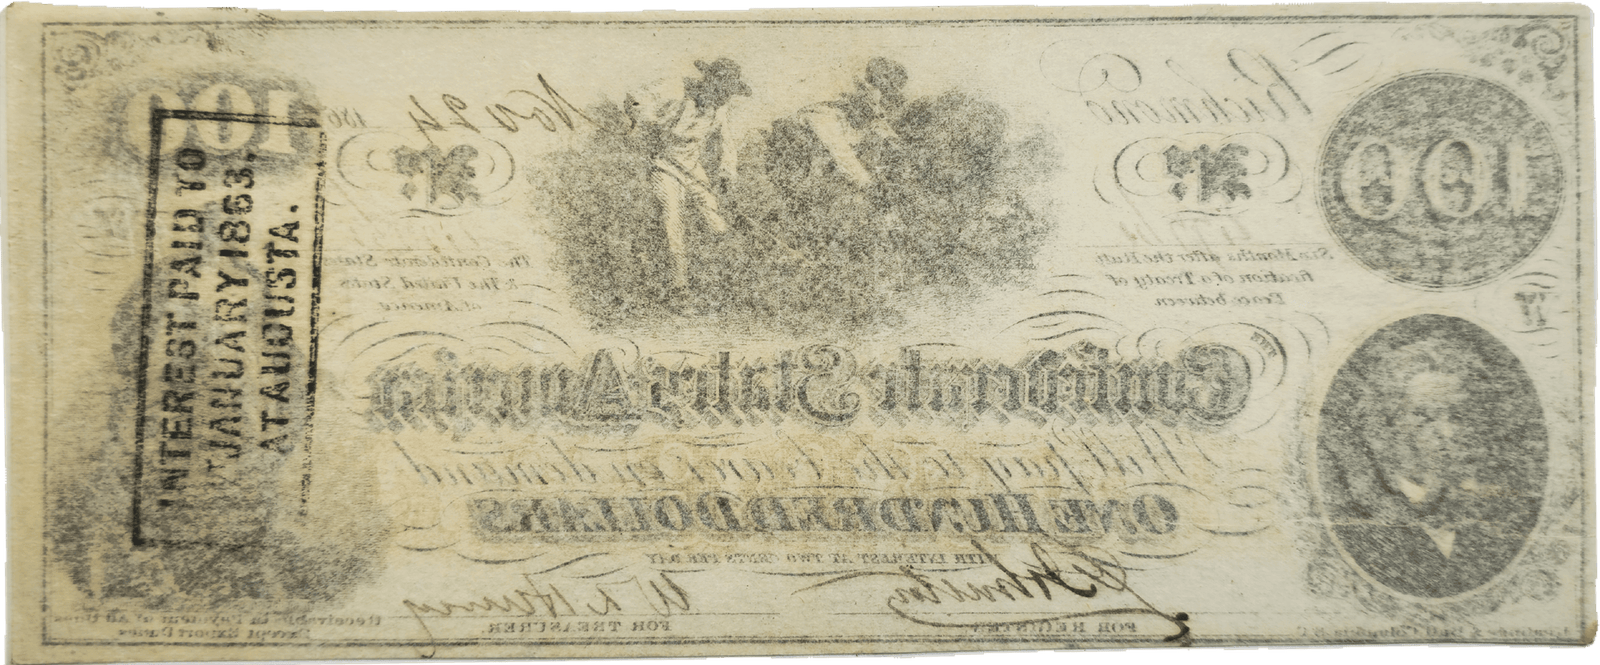 Richmond
Nov 24 186
100
100
No.
No.
Six Months after the Rati-
fication of a Treaty of
Peace between
The Confederate States
& The United States
of America
Confederate States America
Will pay to the bearer on demand
ONE HUNDRED DOLLARS
WITH INTEREST AT TWO CENTS PER DAY
FOR REGISTER
FOR TREASURER.
Receivable in Payment of All Dues
Except Export Duties
INTEREST PAID TO
1ST JANUARY 1863,
AT AUGUSTA.